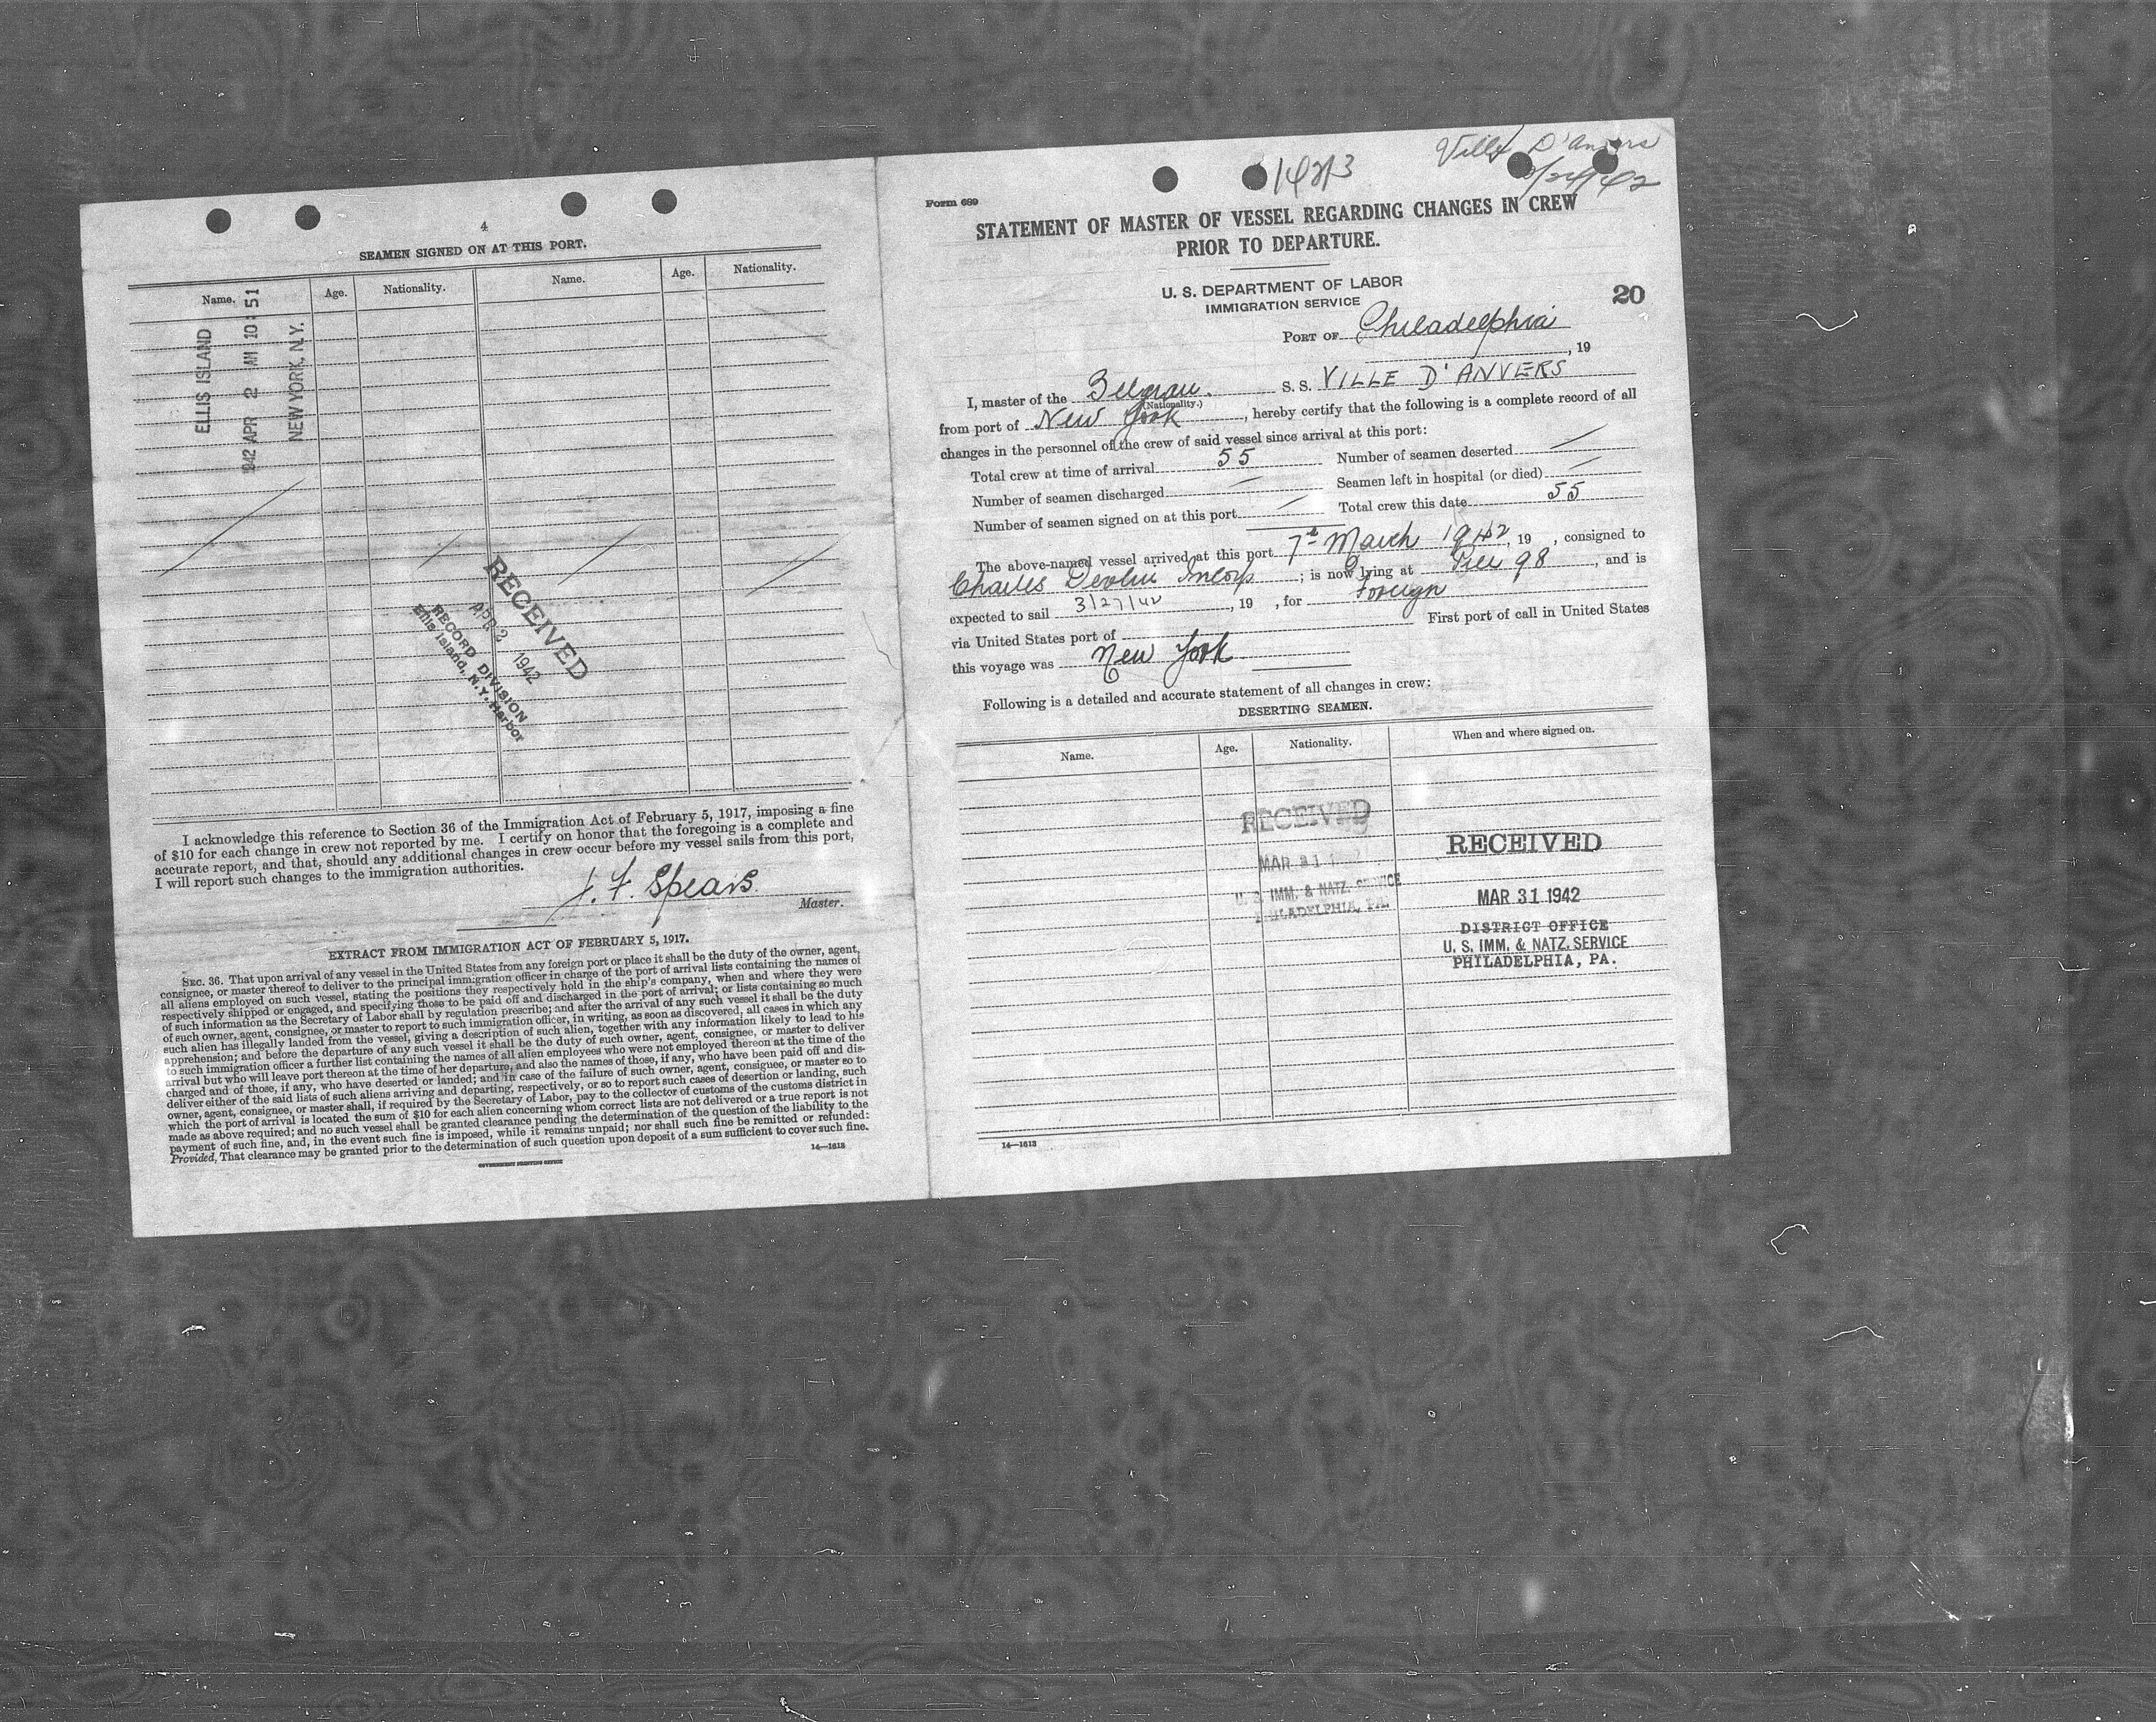 4
SEAMEN SIGNED ON AT THIS PORT.
Name. Age. Nationality. Name. Age. Nationality.
ELLIS ISLAND
1942 APR 2 AM 10:51
NEW YORK, N.Y.
RECEIVED
APR 2 1942
RECORD DIVISION
Ellis Island, N.Y. Harbor
I acknowledge this reference to Section 36 of the Immigration Act of February 5, 1917, imposing a fine
of $10 for each change in crew not reported by me. I certify on honor that the foregoing is a complete and
accurate report, and that, should any additional changes in crew occur before my vessel sails from this port,
I will report such changes to the immigration authorities.
J. F. Spears
Master.
EXTRACT FROM IMMIGRATION ACT OF FEBRUARY 5, 1917.
SEC. 36. That upon arrival of any vessel in the United States from any foreign port or place it shall be the duty of the owner, agent,
consignee, or master thereof to deliver to the principal immigration officer in charge of the port of arrival lists containing the names of
all aliens employed on such vessel, stating the positions they respectively hold in the ship's company, when and where they were
respectively shipped or engaged, and specifying those to be paid off and discharged in the port of arrival; or lists containing so much
of such information as the Secretary of Labor shall by regulation prescribe; and after the arrival of any such vessel it shall be the duty
of such owner, agent, consignee, or master to report to such immigration officer, in writing, as soon as discovered, all cases in which any
such alien has illegally landed from the vessel, giving a description of such alien, together with any information likely to lead to his
apprehension; and before the departure of any such vessel it shall be the duty of such owner, agent, consignee, or master to deliver
to such immigration officer a further list containing the names of all alien employees who were not employed thereon at the time of the
arrival but who will leave port thereon at the time of her departure, and also the names of those, if any, who have been paid off and dis-
charged and of those, if any, who have deserted or landed; and in case of the failure of such owner, agent, consignee, or master so to
deliver either of the said lists of such aliens arriving and departing, respectively, or so to report such cases of desertion or landing, such
owner, agent, consignee, or master shall, if required by the Secretary of Labor, pay to the collector of customs of the customs district in
which the port of arrival is located the sum of $10 for each alien concerning whom correct lists are not delivered or a true report is not
made as above required; and no such vessel shall be granted clearance pending the determination of the question of the liability to the
payment of such fine, and, in the event such fine is imposed, while it remains unpaid; nor shall such fine be remitted or refunded:
Provided, That clearance may be granted prior to the determination of such question upon deposit of a sum sufficient to cover such fine.
14—1613
GOVERNMENT PRINTING OFFICE
Ville D'Anvers
Form 689
STATEMENT OF MASTER OF VESSEL REGARDING CHANGES IN CREW
PRIOR TO DEPARTURE.
U. S. DEPARTMENT OF LABOR
IMMIGRATION SERVICE
20
PORT OF Philadelphia
, 19
I, master of the Belgian. S. S. VILLE D'ANVERS
(Nationality.)
from port of New York, hereby certify that the following is a complete record of all
changes in the personnel of the crew of said vessel since arrival at this port:
Total crew at time of arrival 55 Number of seamen deserted —
Number of seamen discharged — Seamen left in hospital (or died) —
Number of seamen signed on at this port — Total crew this date 55
The above-named vessel arrived at this port 7th March 1942, 19 , consigned to
Charles Devlin Incorp ; is now lying at Pier 98, and is
expected to sail 3/27/42, 19 , for Foreign
via United States port of First port of call in United States
this voyage was New York
Following is a detailed and accurate statement of all changes in crew:
DESERTING SEAMEN.
Name. Age. Nationality. When and where signed on.
RECEIVED
MAR 31
U. S. IMM. & NATZ. SERVICE
PHILADELPHIA, PA.
RECEIVED
MAR 31 1942
DISTRICT OFFICE
U. S. IMM. & NATZ. SERVICE
PHILADELPHIA, PA.
14—1613